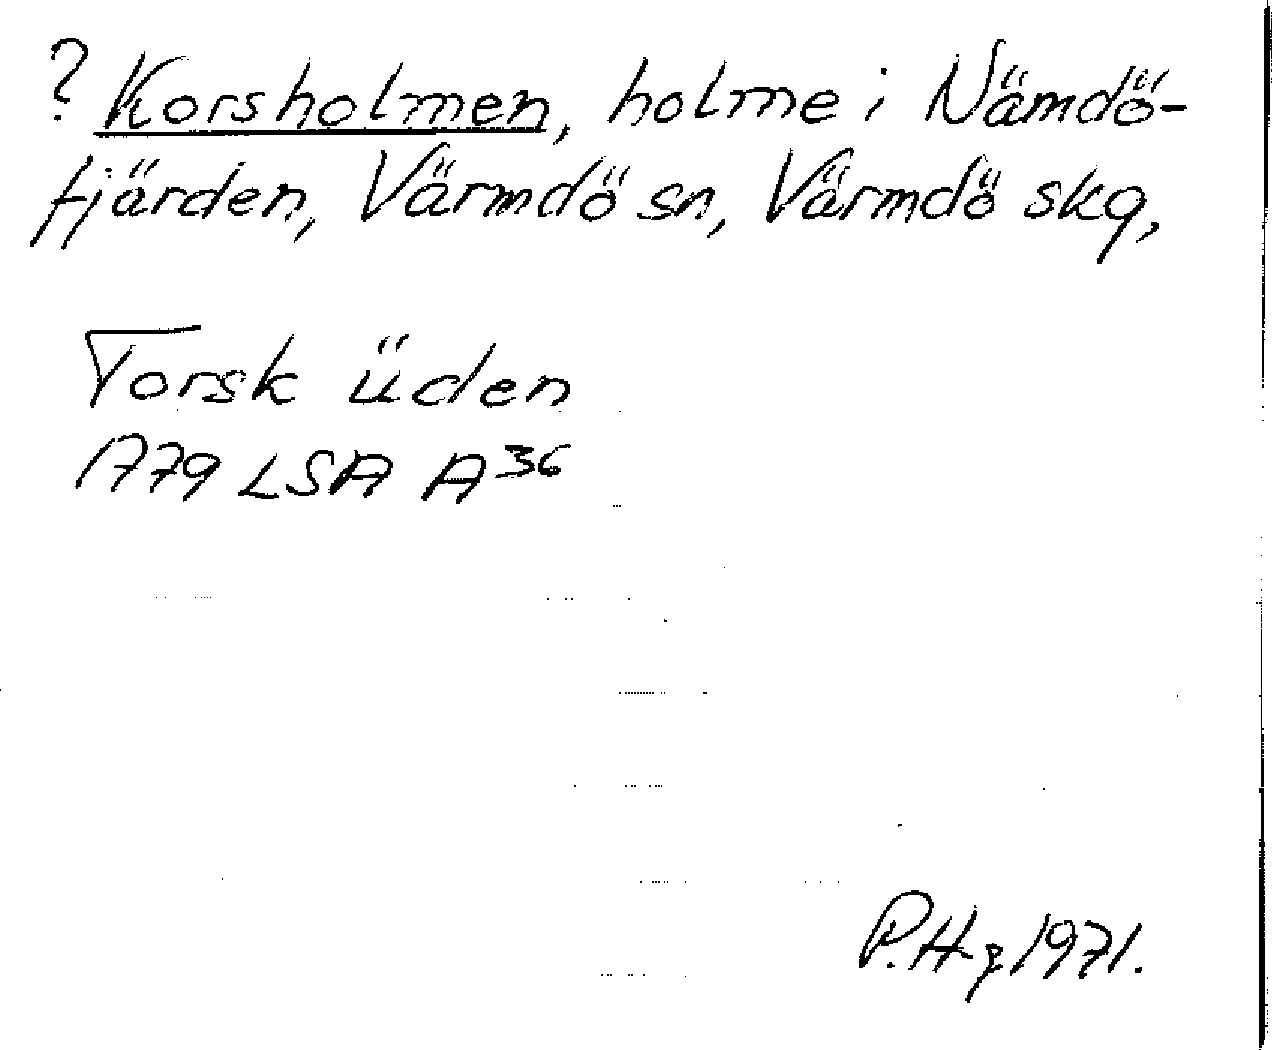 ? Korsholmen, holme i Nämdö-
fjärden, Värmdö sn, Värmdö skg,
Torsk üden
1779 LSA A36
P. Hg 1971.